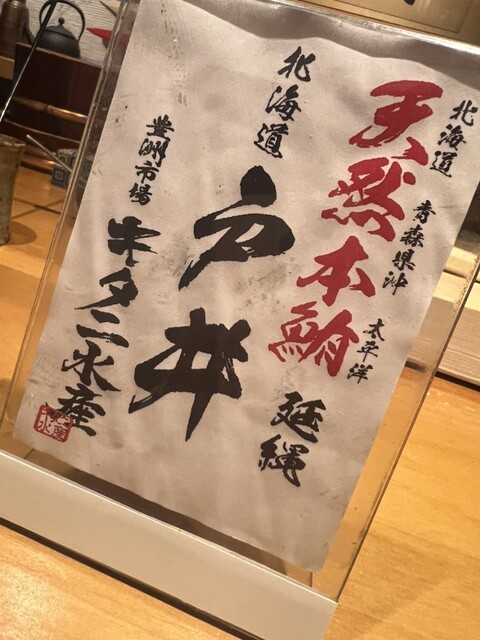 北海道
青森県沖
太平洋
天然本鮪
延縄
北海道
戸井
豊洲市場
キタニ水産